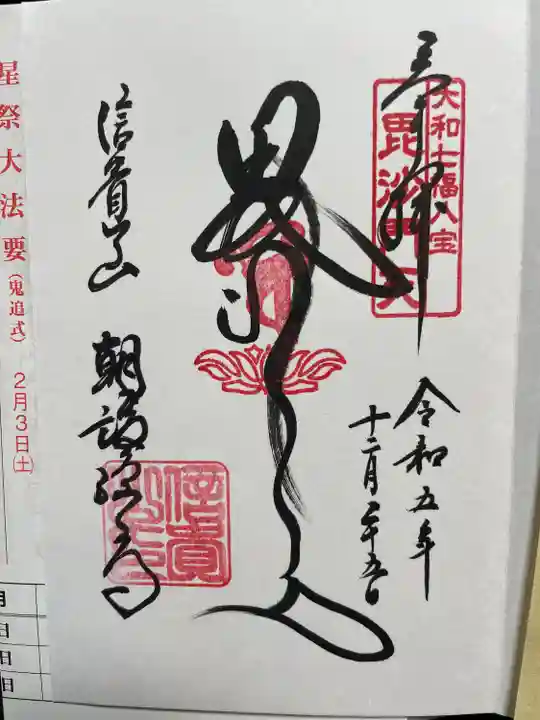 奉拝
大和七福八宝
毘沙門天
令和五年
十二月二十五日
信貴山 朝護孫子寺
信貴
星祭大法要(鬼追式) 2月3日(土)
月
日
日
日